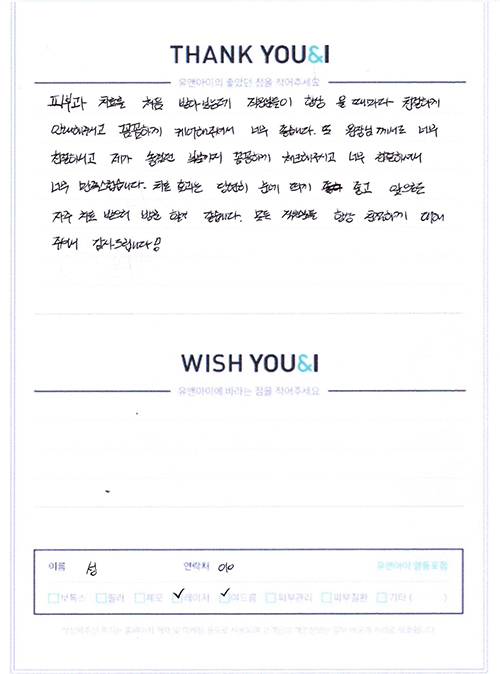 THANK YOU&I
유앤아이의 좋았던 점을 적어주세요
피부과 치료를 처음 받아보는데 직원분들이 항상 올 때마다 친절하게
안내해주시고 꼼꼼하게 케어해주셔서 너무 좋습니다. 또 원장님께서도 너무
친절하시고 제가 놓쳤던 부분까지 꼼꼼하게 체크해주시고 너무 친절하셔서
너무 만족스럽습니다. 치료 효과는 당연히 눈에 띄게 좋고 앞으로도
자주 치료 받으러 방문 할거 같습니다. 모든 직원분들 항상 친절하게 대해
주셔서 감사드립니다!
WISH YOU&I
유앤아이에 바라는 점을 적어주세요
이름 성 연락처 010 유앤아이 영등포점
보톡스 필러 제모 레이저 여드름 피부관리 피부질환 기타 ( )